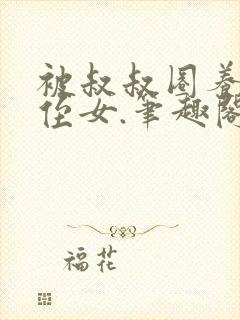 被叔叔圈养
侄女.笔趣阁
福花